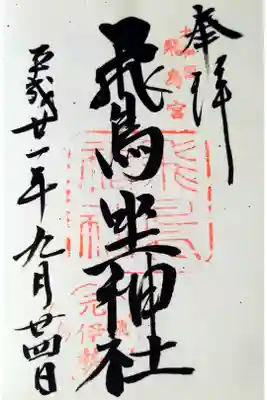 奉拝
飛鳥坐神社
平成廿一年九月廿四日
元伊勢